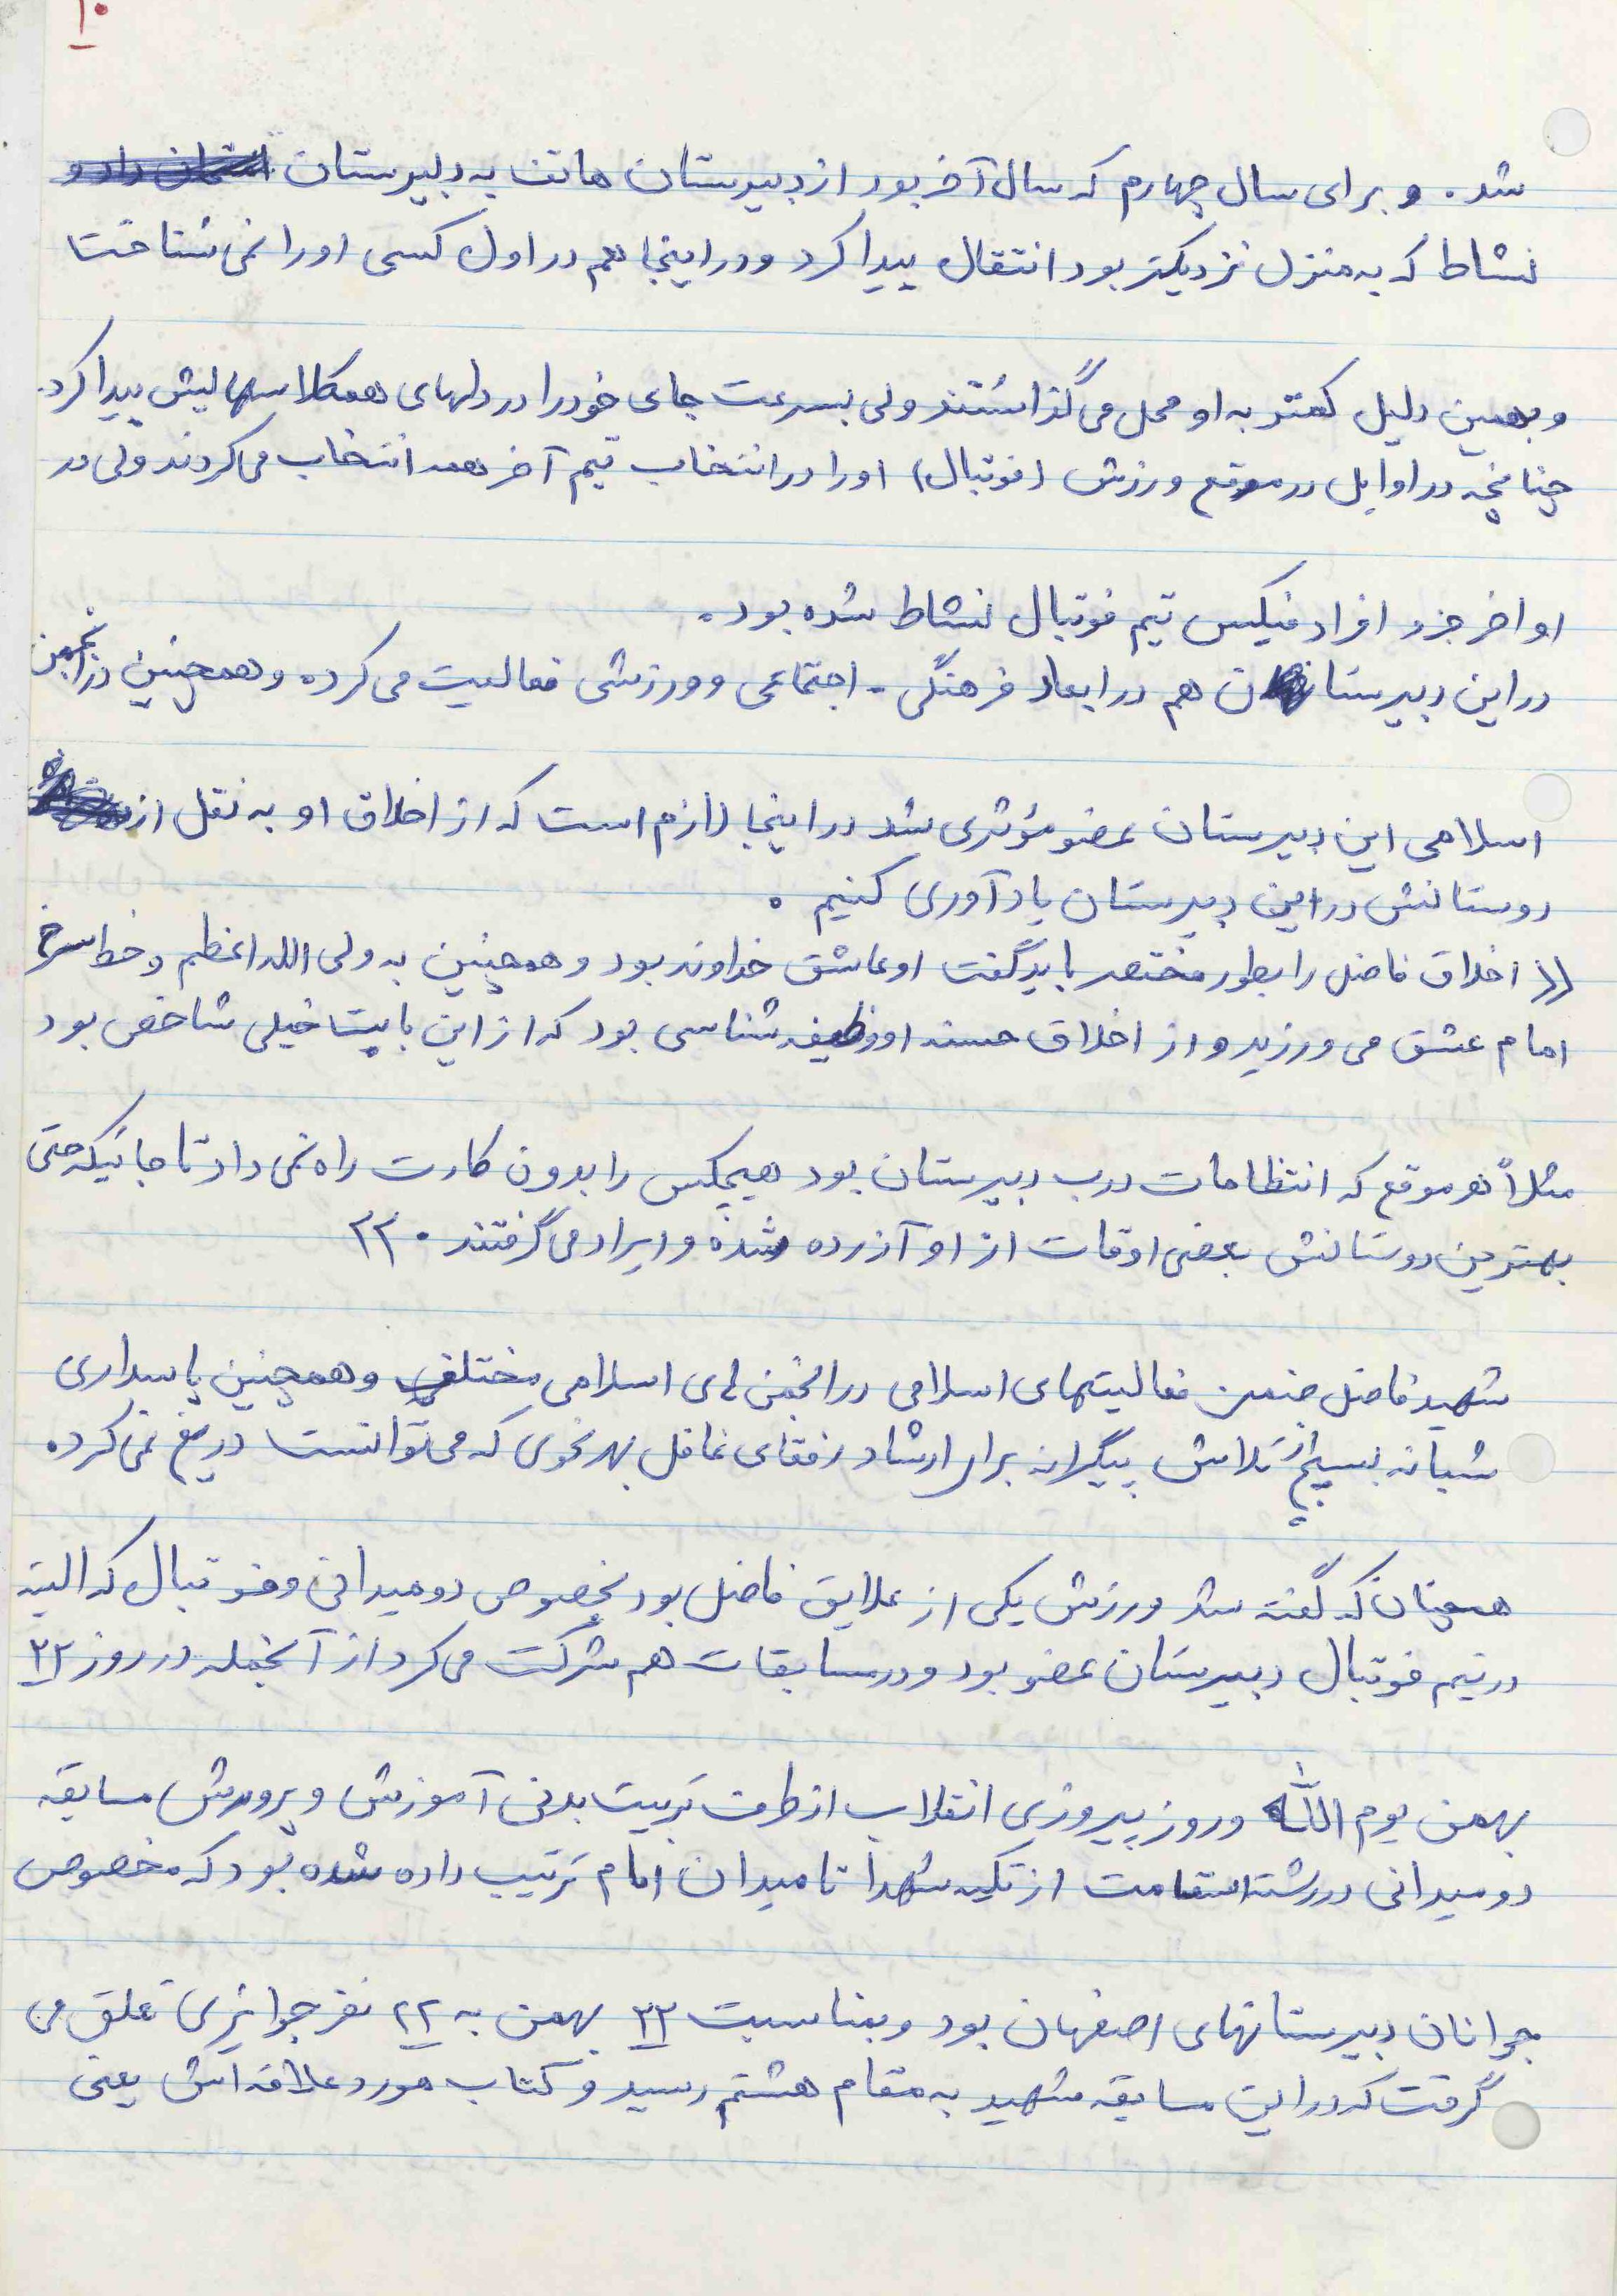 ۱۰
شد. و برای سال چهارم که سال آخر بود از دبیرستان هاتف به دبیرستان
نشاط که به منزل نزدیکتر بود انتقال پیدا کرد و در اینجا هم در اول کسی او را نمی شناخت
و بهمین دلیل کمتر به او محل می گذاشتند ولی بسرعت جای خود را در دلهای همکلاسیهایش پیدا کرد.
چنانچه در اوایل در موقع ورزش (فوتبال) او را در انتخاب تیم آخر همه انتخاب می کردند ولی در
اواخر جزو افراد فیکس تیم فوتبال نشاط شده بود.
در این دبیرستان هم در ابعاد فرهنگی - اجتماعی و ورزشی فعالیت می کرده و همچنین در انجمن
اسلامی این دبیرستان عضو مؤثری شد در اینجا لازم است که از اخلاق او به نقل از
دوستانش در این دبیرستان یادآوری کنیم .
« اخلاق فاضل را بطور مختصر باید گفت او عاشق خداوند بود و همچنین به ولی الله اعظم و خط سرخ
امام عشق می ورزید و از اخلاق حسنه او وظیفه شناسی بود که از این بابت خیلی شاخص بود
مثلاً هر موقع که انتظامات درب دبیرستان بود هیچکس را بدون کارت راه نمی داد تا جائیکه حتی
بهترین دوستانش بعضی اوقات از او آزرده شده و ایراد می گرفتند . »
شهید فاضل ضمن فعالیتهای اسلامی در انجمن های اسلامی مختلف و همچنین پاسداری
شبانه بسیج از تلاش پیگیرانه برای ارشاد رفقای غافل بهر نحوی که می توانست دریغ نمی کرده
همچنان که گفته شد ورزش یکی از علایق فاضل بود بخصوص دو میدانی و فوتبال که البته
در تیم فوتبال دبیرستان عضو بود و در مسابقات هم شرکت می کرد از آنجمله در روز ۲۲
بهمن یوم الله و روز پیروزی انقلاب از طرف تربیت بدنی آموزش و پرورش مسابقه
دو میدانی در رشته استقامت از تکیه شهدا تا میدان امام ترتیب داده شده بود که مخصوص
جوانان دبیرستانهای اصفهان بود و بمناسبت ۲۲ بهمن به ۲۲ نفر جوایزی تعلق می
گرفت که در این مسابقه شهید به مقام هشتم رسید و کتاب مورد علاقه اش یعنی